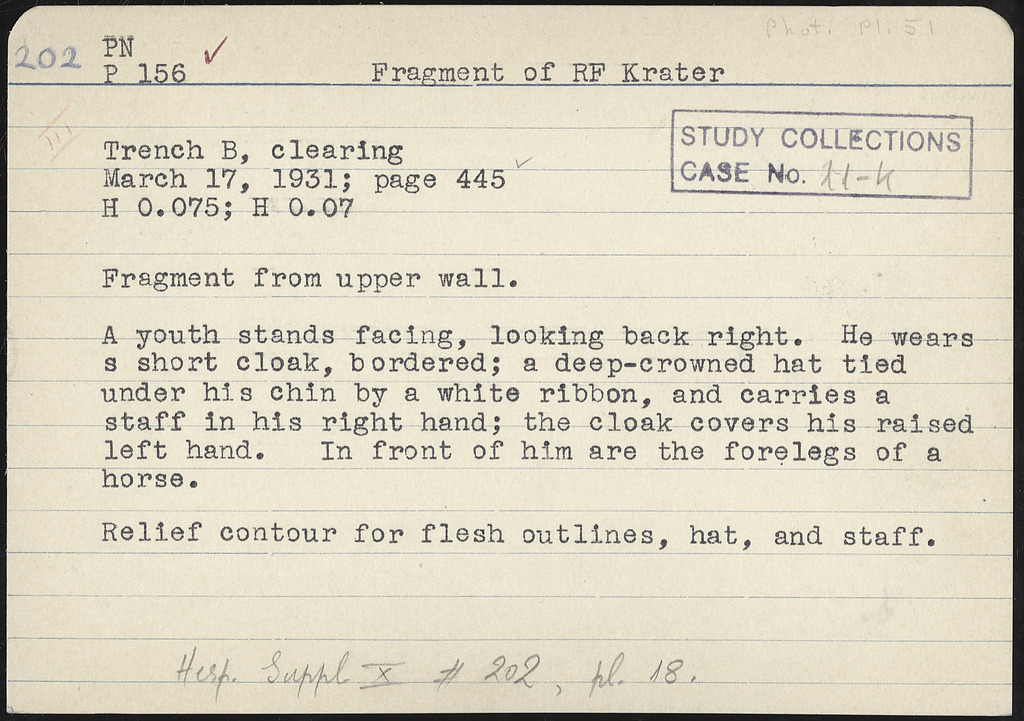 Phot. Pl. 51
202 PN
P 156 ✓ Fragment of RF Krater
III
STUDY COLLECTIONS
CASE No. 11-4
Trench B, clearing
March 17, 1931; page 445 ✓
H 0.075; H 0.07
Fragment from upper wall.
A youth stands facing, looking back right. He wears
s short cloak, bordered; a deep-crowned hat tied
under his chin by a white ribbon, and carries a
staff in his right hand; the cloak covers his raised
left hand. In front of him are the forelegs of a
horse.
Relief contour for flesh outlines, hat, and staff.
Hesp. Suppl. X # 202, pl. 18.